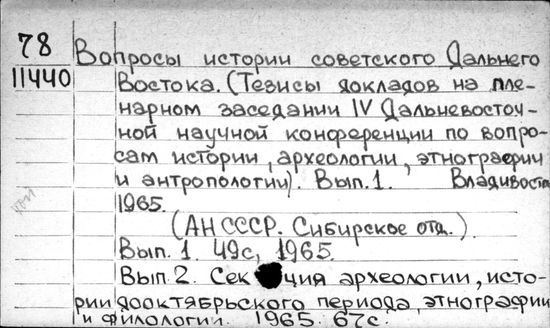 78
11440
Вопросы истории советского Дальнего
Востока. (Тезисы докладов на пле-
нарном заседании IV Дальневосточ-
ной научной конференции по вопро-
сам истории, археологии, этнографии
и антропологии). Вып. 1. Владивосток
1965.
(АН СССР. Сибирское отд.).
Вып. 1. 49с, 1965.
Вып. 2. Секция археологии, исто-
рии дооктябрьского периода, этнографии
и филологии. 1965. 67с.